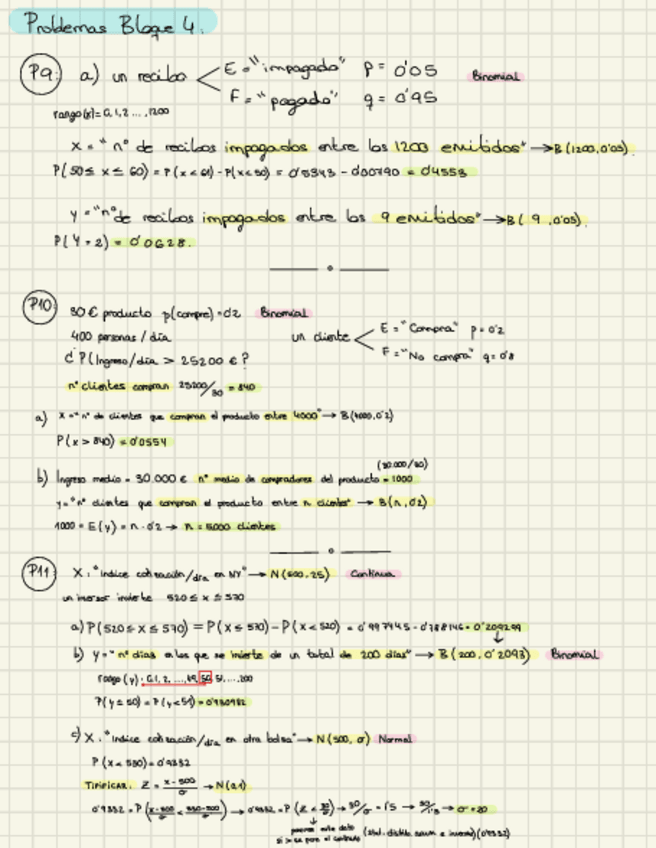 Problemas Bloque 4.
P9: a) un recibo E="impagado" p= 0'05 Binomial
F="pagado" q= 0'95
rango(x)=0,1,2...,1200
X="nº de recibos impagados entre los 1200 emitidos" → B(1200,0'05).
P(50≤ x ≤ 60) = P(x<61) - P(x<50) = 0'5343 - 0'00790 = 0'4553
y="nº de recibos impagados entre los 9 emitidos" → B(9,0'05).
P(Y=2) = 0'0628.
P10: 30€ producto p(compre)=0'2 Binomial
400 personas/día un cliente E="Compra" p=0'2
F="No compra" q=0'8
¿P(Ingreso/día > 25200€?
nº clientes compran 25200/30 = 840
a) X="nº de clientes que compran el producto entre 4000" → B(4000,0'2)
P(x>840) = 0'0554
(30.000/30)
b) Ingreso medio = 30.000€ nº medio de compradores del producto = 1000
y="nº clientes que compran el producto entre n clientes" → B(n,0'2)
1000 = E(y) = n·0'2 → n = 5000 clientes
P11: X:"indice cotización/día en NY" → N(500,25) Continua
un inversor invierte 520≤ x ≤570
a) P(520≤ x ≤570) = P(x ≤ 570) - P(x < 520) = 0'997445 - 0'788146 = 0'209299
b) y="nº días en los que se invierte de un total de 200 días" → B(200,0'2093) Binomial
rango(y): 0,1,2,...,49,50,51,...,200
P(y≤50) = P(y<51) = 0'930982
c) X:"indice cotización/día en otra bolsa" → N(500,σ) Normal
P(x<530)=0'9332
Tipificar. Z = x-500/σ → N(0,1)
0'9332 = P(x-500/σ < 530-500/σ) → 0'9332 = P(Z < 30/σ) → 30/σ = 1'5 → 30/1'5 → σ=20
este dato (0'9332)